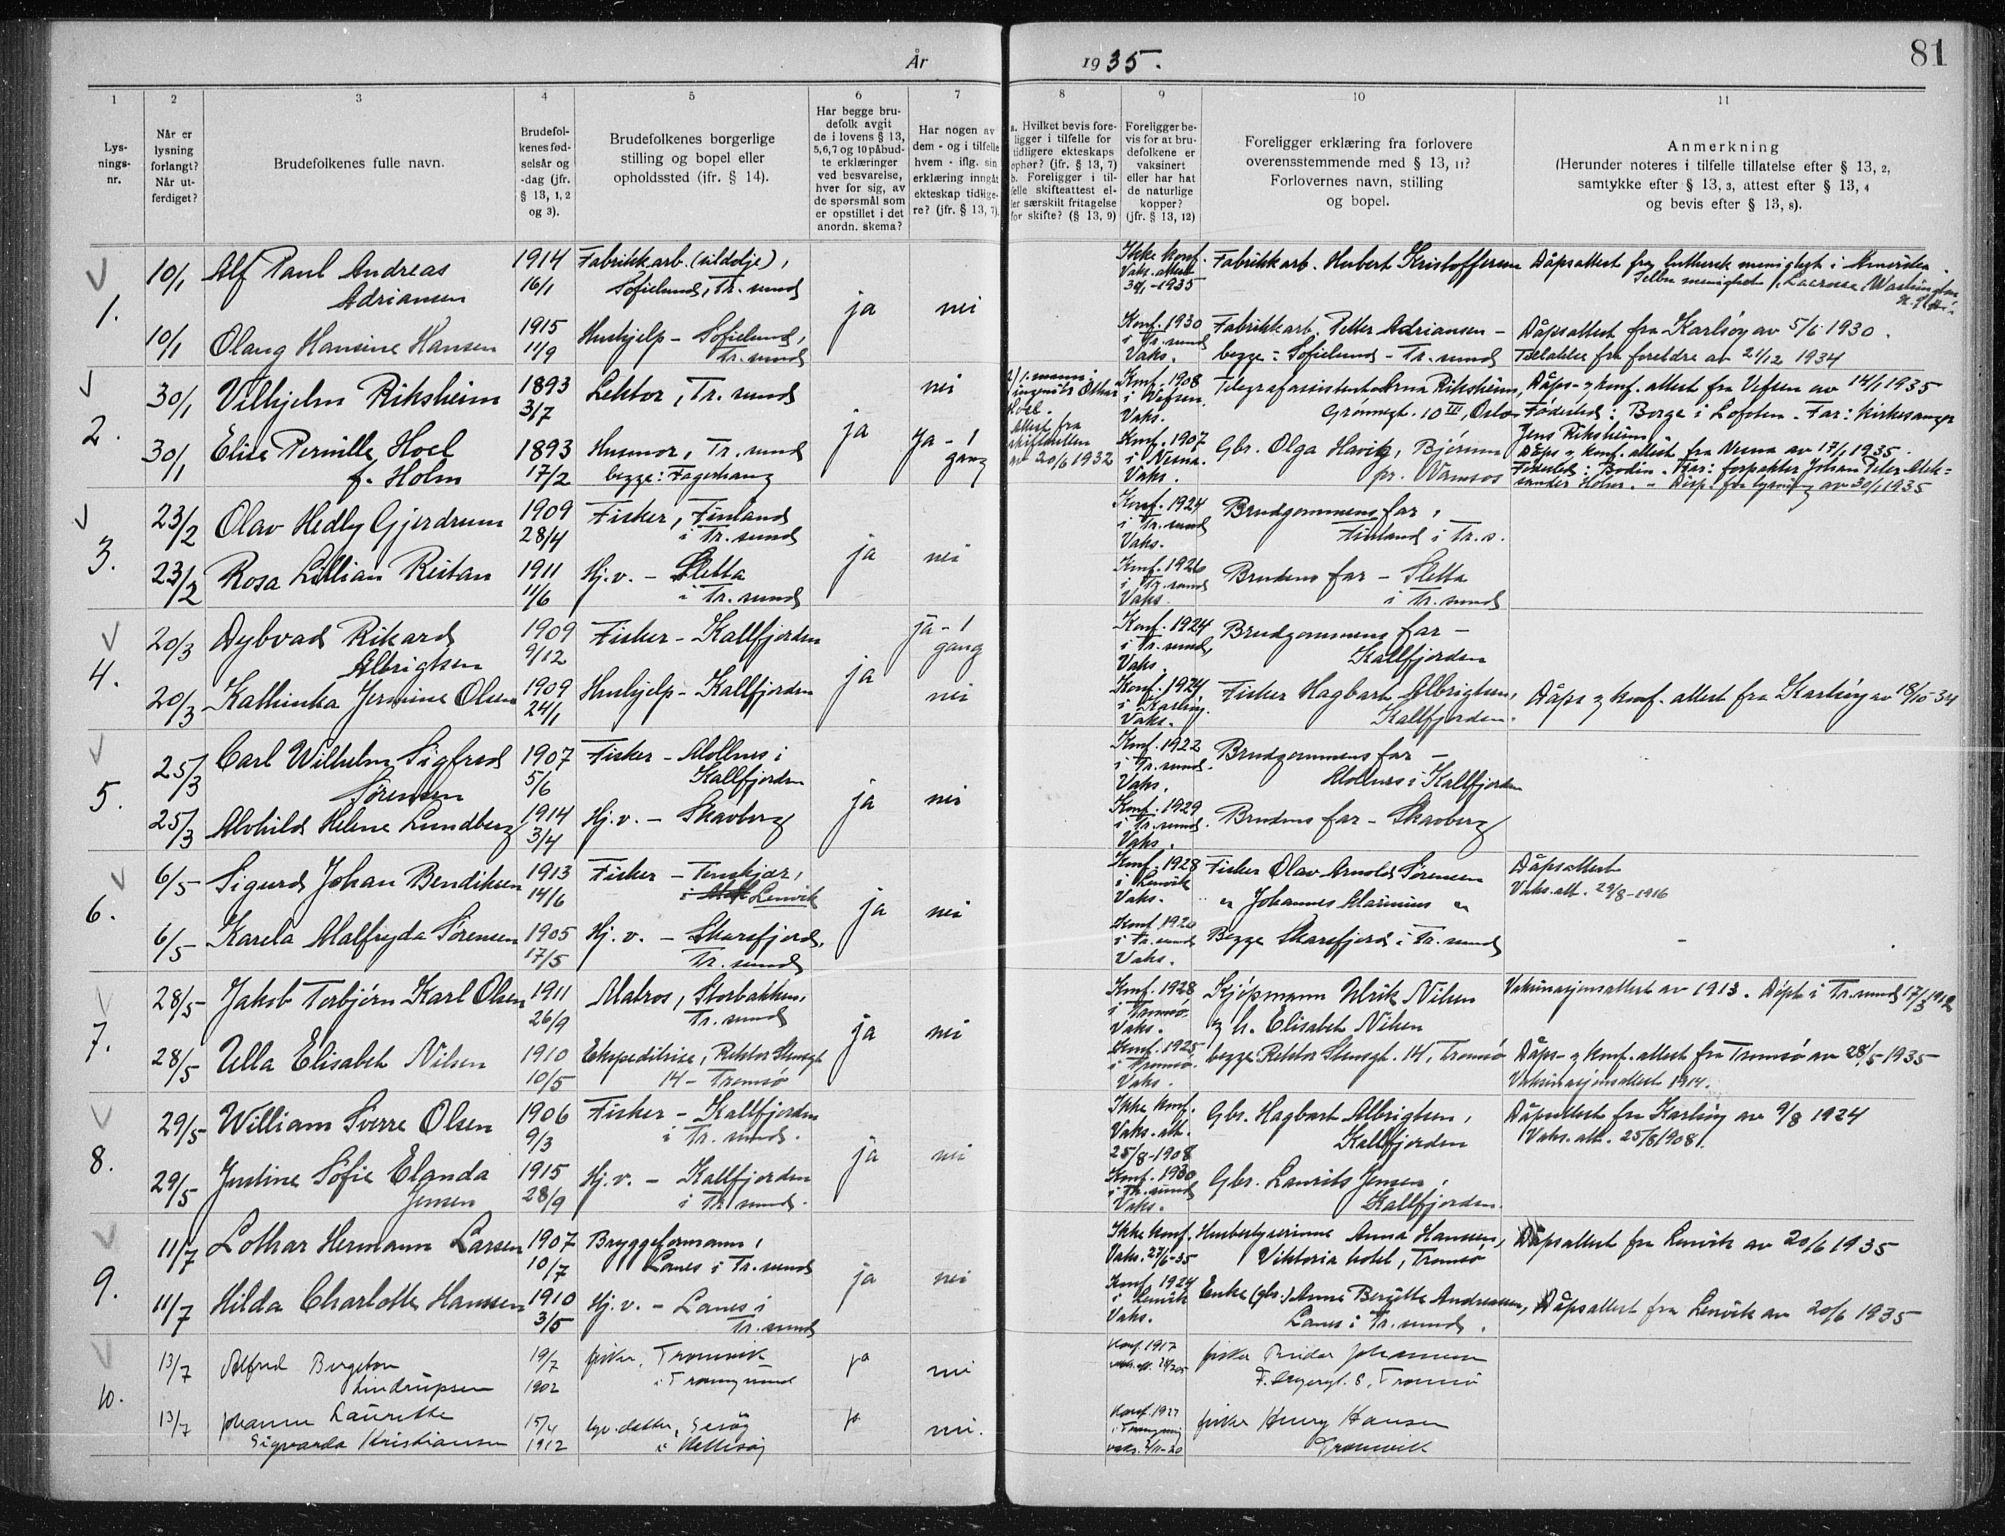 År 1935.
81
1 2 3 4 5 6 7 8 9 10 11
Lys-
nings-
nr.
Når er
lysning
forlangt?
Når ut-
ferdiget?
Brudefolkenes fulle navn.
Brudefol-
kenes fød-
selsår og
-dag (jfr.
§ 13, 1, 2
og 3).
Brudefolkenes borgerlige
stilling og bopel eller
opholdssted (jfr. § 14).
Har begge bru-
defolk avgit
de i lovens § 13,
5,6,7 og 10 påbud-
te erklæringer
ved besvarelse,
hver for sig, av
de spørsmål som
er opstillet i det
anordn. skema?
Har nogen av
dem - og i tilfelle
hvem - iflg. sin
erklæring inngått
ekteskap tidlige-
re? (jfr. § 13, 7).
a. Hvilket bevis fore-
ligger i tilfelle for
tidligere ekteskaps
ophør? (jfr. § 13, 7)
b. Foreligger i til-
felle skifteattest el-
ler særskilt fritagelse
for skifte? (§ 13, 9)
Foreligger be-
vis for at bru-
defolkene er
vaksinert
eller har hat
de naturlige
kopper?
(jfr. § 13, 12)
Foreligger erklæring fra forlovere
overensstemmende med § 13, 11?
Forlovernes navn, stilling
og bopel.
Anmerkning
(Herunder noteres i tilfelle tillatelse efter § 13, 2,
samtykke efter § 13, 3, attest efter § 13, 4
og bevis efter § 13, 8).
1.
10/1 Alf Paul Andreas
Adriansen
1914
16/1
Fabrikkarb. (sildolje),
Sofielund, Tr. sund
ja
nei
Ikke konf.
Vaks. attest
30/1-1935
Fabrikkarb. Hubert Kristoffersen
Dåpsattest fra luthersk menighet i Amerika.
10/1 Olaug Hansine Hansen
1915
11/9
Hushjelp - Sofielund,
Tr. sund
Konf. 1930
i Tr. sund
Vaks.
Fabrikkarb. Petter Adriansen -
begge: Sofielund - Tr. sund
Dåpsattest fra Karlsøy av 5/6 1930.
Tillatelse fra foreldre av 21/12 1934
2.
30/1 Vilhjelm Riksheim
1893
3/7
Lektor, Tr. sund
ja
nei
Konf. 1908
i Vefsen.
Vaks.
Telegrafassistent Arna Riksheim,
Grønnegt. 10 III, Oslo
Dåps- og konf. attest fra Vefsen av 14/1 1935
Fødested: Borge i Lofoten. Far: Kirkesanger
Jens Riksheim.
30/1 Elise Pernille Hoel
f. Holm
1893
17/2
Husmor, Tr. sund
begge: Fagerhaug
Ja - 1
gang
attest fra
skifteretten
av 20/6 1932
Konf. 1907
i Nesna.
Vaks.
Gbr. Olga Havig, Bjørnm
pr. Vamsos
Dåps og konf. attest fra Nesna av 17/1 1935.
Fødested: Bodin. Far: forpakter Johan Peter Alek-
sander Holm. - Disp. for lysning av 30/1 1935
3.
23/2 Olav Hedly Gjerdrum
1909
28/4
Fisker, Finland
i Tr. sund
ja
nei
Konf. 1924
i Tr. sund
Vaks.
Brudgommens far,
Finland i Tr. s.
23/2 Rosa Lillian Reitan
1911
11/6
Hj.v. - Sletta
i Tr. sund
Konf. 1926
i Tr. sund
Vaks.
Brudens far - Sletta
i Tr. sund
4.
20/3 Dybvad Rikard
Albrigtsen
1909
9/12
Fisker - Kallfjorden
ja
ja - 1
gang
Konf. 1924
i Tr. sund,
Vaks.
Brudgommens far -
Kallfjorden
20/3 Kathinka Jermine Olsen
1909
24/1
Hushjelp - Kallfjorden
nei
Konf. 1924.
i Karlsøy.
Vaks.
Fisker Hagbart Albrigtsen,
Kallfjorden.
Dåps og konf. attest fra Karlsøy av 18/10-34
5.
25/3 Carl Wilhelm Sigfred
Sørensen
1907
5/6
Fisker - Mollnes i
Kallfjorden
ja
nei
Konf. 1922
i Tr. sund.
Vaks.
Brudgommens far -
Mollnes i Kallfjorden
25/3 Alvhild Helene Lundberg
1914
3/4
Hj.v. - Skavberg
Konf. 1929
i Tr. sund.
Vaks.
Brudens far - Skavberg
6.
6/5 Sigurd Johan Bendiksen
1913
14/6
Fisker - Tennskjær,
i Lenvik
ja
nei
Konf. 1928
i Lenvik
Vaks.
Fisker Olav Arnold Sørensen
Dåpsattest
Vaks. att. 29/8-1916
6/5 Karela Malfryda Sørensen
1905
17/5
Hj.v. - Skarsfjord,
Tr. sund
Konf. 1920
i Tr. sund
Vaks.
" Johannes Marinius "
Begge Skarsfjord i Tr. sund
7.
28/5 Jakob Torbjørn Karl Olsen
1911
26/9
Matros, Storbakken,
Tr. sund
ja
nei
Konf. 1928
i Tromsø.
Vaks.
Kjøpmann Ulrik Nilsen
og h. Elisabet Nilsen
Vaksinasjonsattest av 1913. Døpt i Tr. sund 17/3 1912
28/5 Ulla Elisabet Nilsen
1910
10/5
Ekspeditrise, Rektor Stensgt
14 - Tromsø
Konf. 1925
i Tromsø.
Vaks.
begge: Rektor Stensgt. 14, Tromsø
Dåps- og konf. attest fra Tromsø av 28/5 1935
Vaksinasjonsattest 1914.
8.
29/5 William Sverre Olsen
1906
9/3
Fisker - Kallfjorden
i Tr. sund.
ja
nei
Ikke konf.
Vaks. att.
25/8-1908
Gbr. Hagbart Albrigtsen,
Kallfjorden
Dåpsattest fra Karlsøy av 9/8 1924
Vaks. att. 25/8 1908.
29/5 Justine Sofie Elanda
Jensen
1915
28/9
Hj.v. - Kallfjorden
i Tr. sund.
Konf. 1930
i Tr. sund
Vaks.
Gbr. Laurits Jensen,
Kallfjorden.
9.
11/7 Lothar Hermann Larsen
1907
10/7
Bryggeformann,
Lanes i Tr. sund
ja
nei
Ikke konf.
Vaks. 27/6-35
Husbestyrerinne Anna Hansen,
Viktoria hotel, Tromsø
Dåpsattest fra Lenvik av 20/6 1935
11/7 Hilda Charlotte Hansen
1910
3/5
Hj.v. - Lanes i
Tr. sund
Konf. 1924
i Lenvik
Vaks.
Enke (gbr.) Anne Bergitte Andreassen,
Lanes i Tr. sund.
Dåpsattest fra Lenvik av 20/6 1935
10.
13/7 Alfred Bergeton
Lindrupsen
19/7
1902
fisker, Tromvik
i Tromsysund
ja
nei
Konf. 1917
fisker Peider Johansen
Tromsø
13/7 Johanne Laurette
Sigvarda Kristiansen
15/4
1912
datter,
i Hillesøy
ja
nei.
Konf. 1927
fisker Henry Hansen
Tromvik